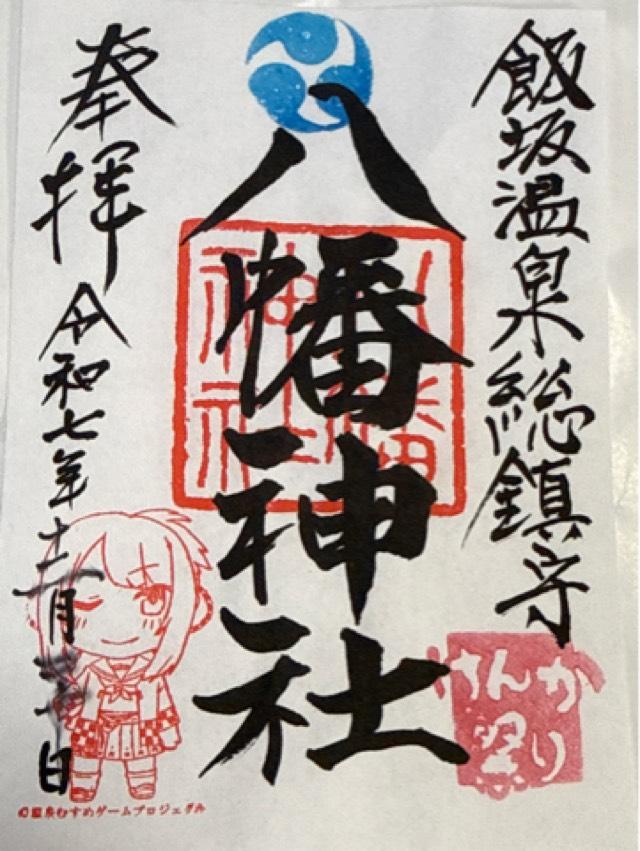 飯坂温泉総鎮守
けんか
祭り
八幡神社
八幡
神社
奉拝
令和七年
月
日
©温泉むすめゲームプロジェクト